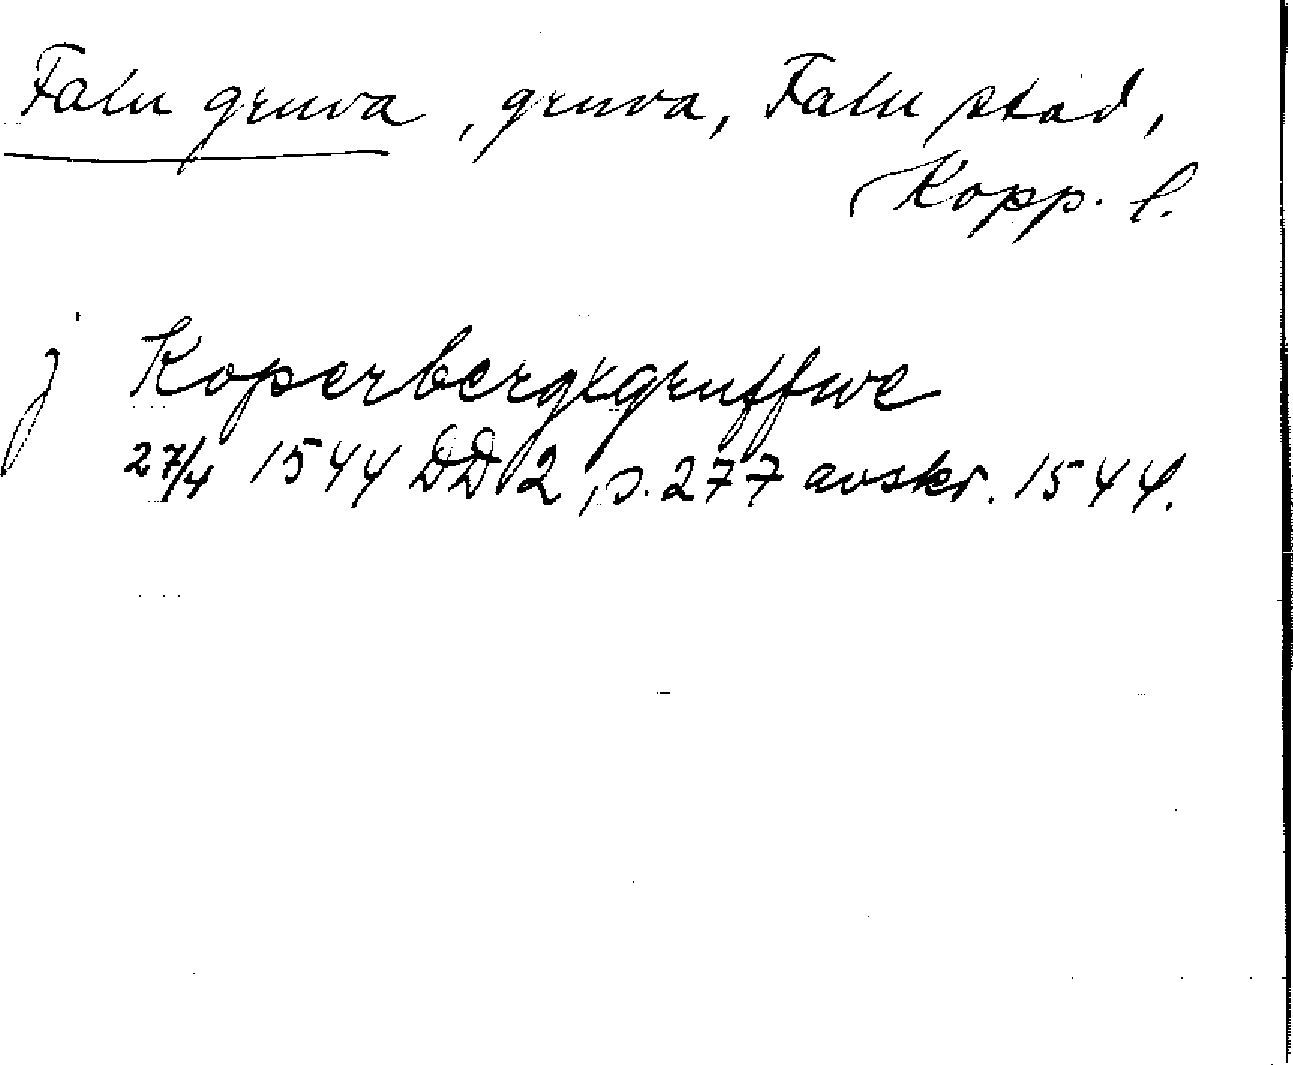 Falu gruva, gruva, Falu stad,
Kopp. l.
j Koperbergxgruffwe
27/4 1544 DD 2, s. 277 avskr. 1544.